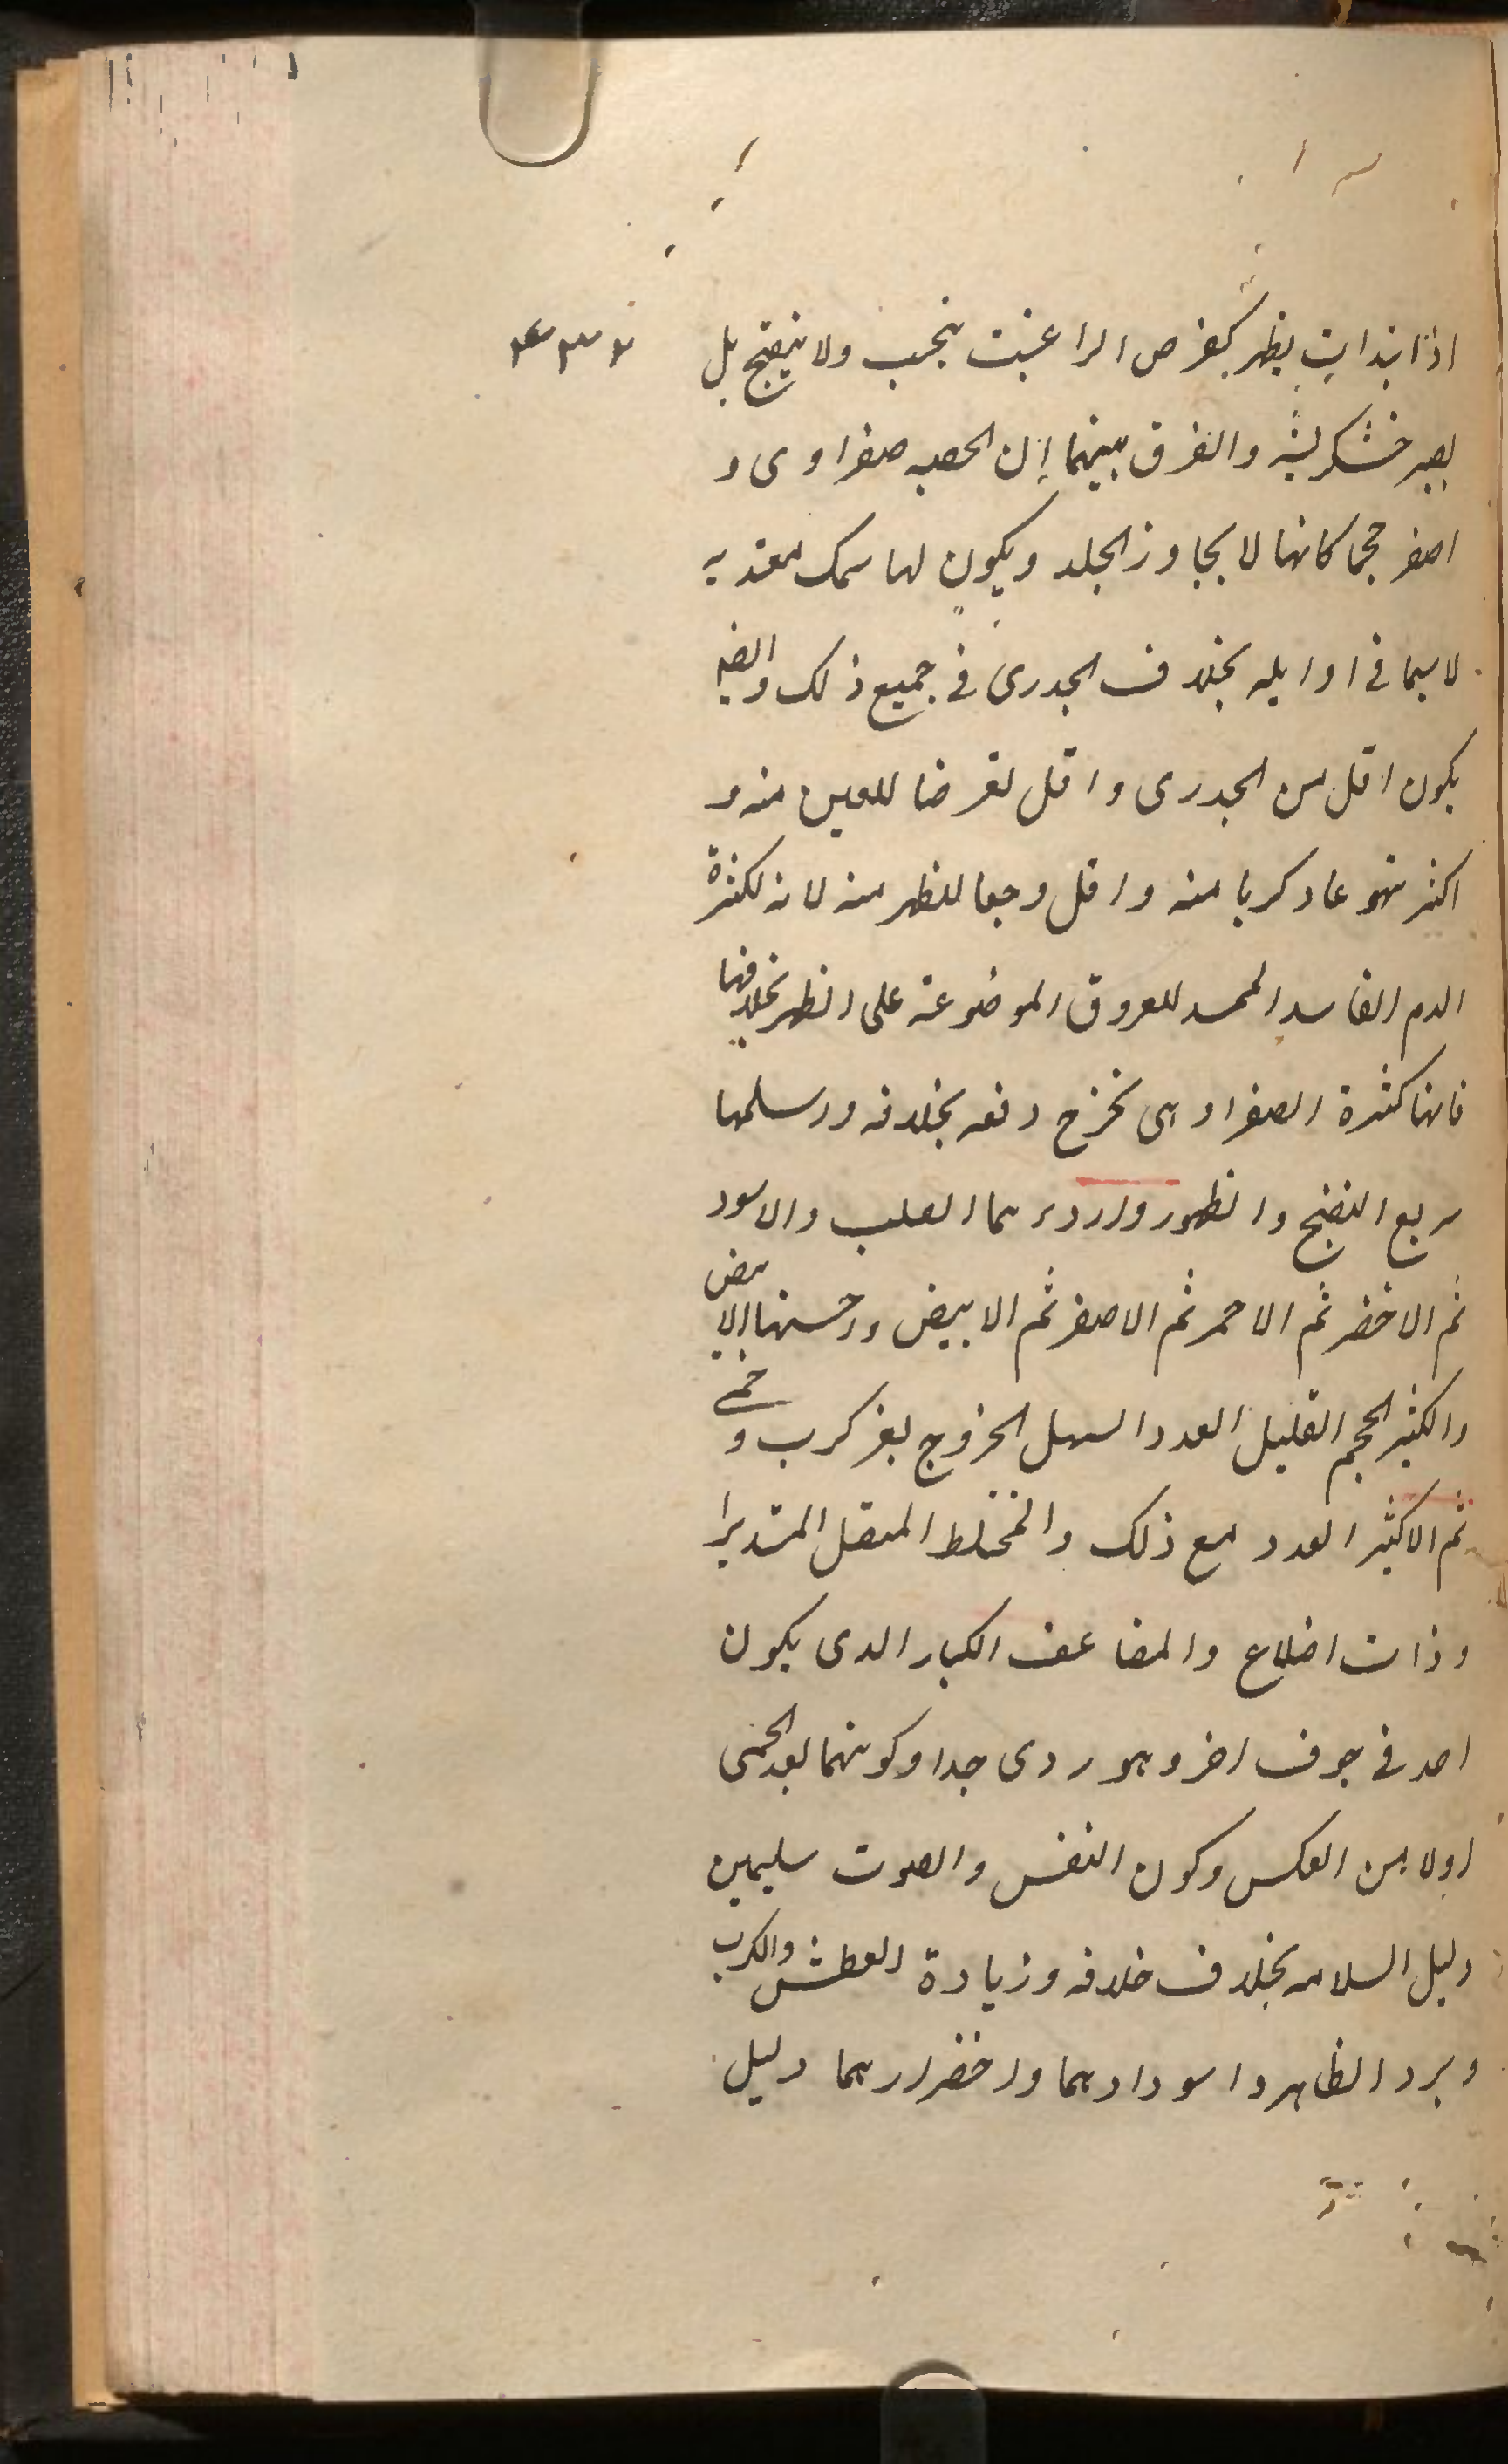 اذا ابتدات يظهر كقرص البراغيث بحب ولا ينفتح بل
يصير خشكريشه والفرق بينهما ان الحصبه صفراوى و
اصغر حجما كانها لا يجاوز الجلد ويكون لها سمك
لا سيما فى اوايله بخلاف الجدرى فى جميع ذلك والضا
يكون اقل من الجدرى واقل تعرضا للعين منه و
اكثر تهوعا وكربا منه واقل وجعا للظهر منه لانه لكثرة
الدم الفاسد الممدد للعروق الموضوعة على الظهر بخلافها
فانها كثرة الصفرا وهى تخرج دفعه بخلافه واسلمها
سريع النضج والظهور واردءهما الصلب والاسود
ثم الاخضر ثم الاحمر ثم الاصفر ثم الابيض واحسنها الابيض
والكثير الحجم القليل العدد السهل الخروج بغير كرب وحمى
ثم الاكثير العدد مع ذلك والمختلط المتصل المستديرا
وذات اضلاع والمضاعف الكبار الدى يكون
احد فى جوف اخر وهو ردى جدا وكونهما بعد الحمى
اولا من العكس وكون النفس والصوت سليمين
دليل السلامه بخلاف خلافه وزيادة العطش والكرب
وبرد الظاهر واسودادهما واخضرارهما دليل